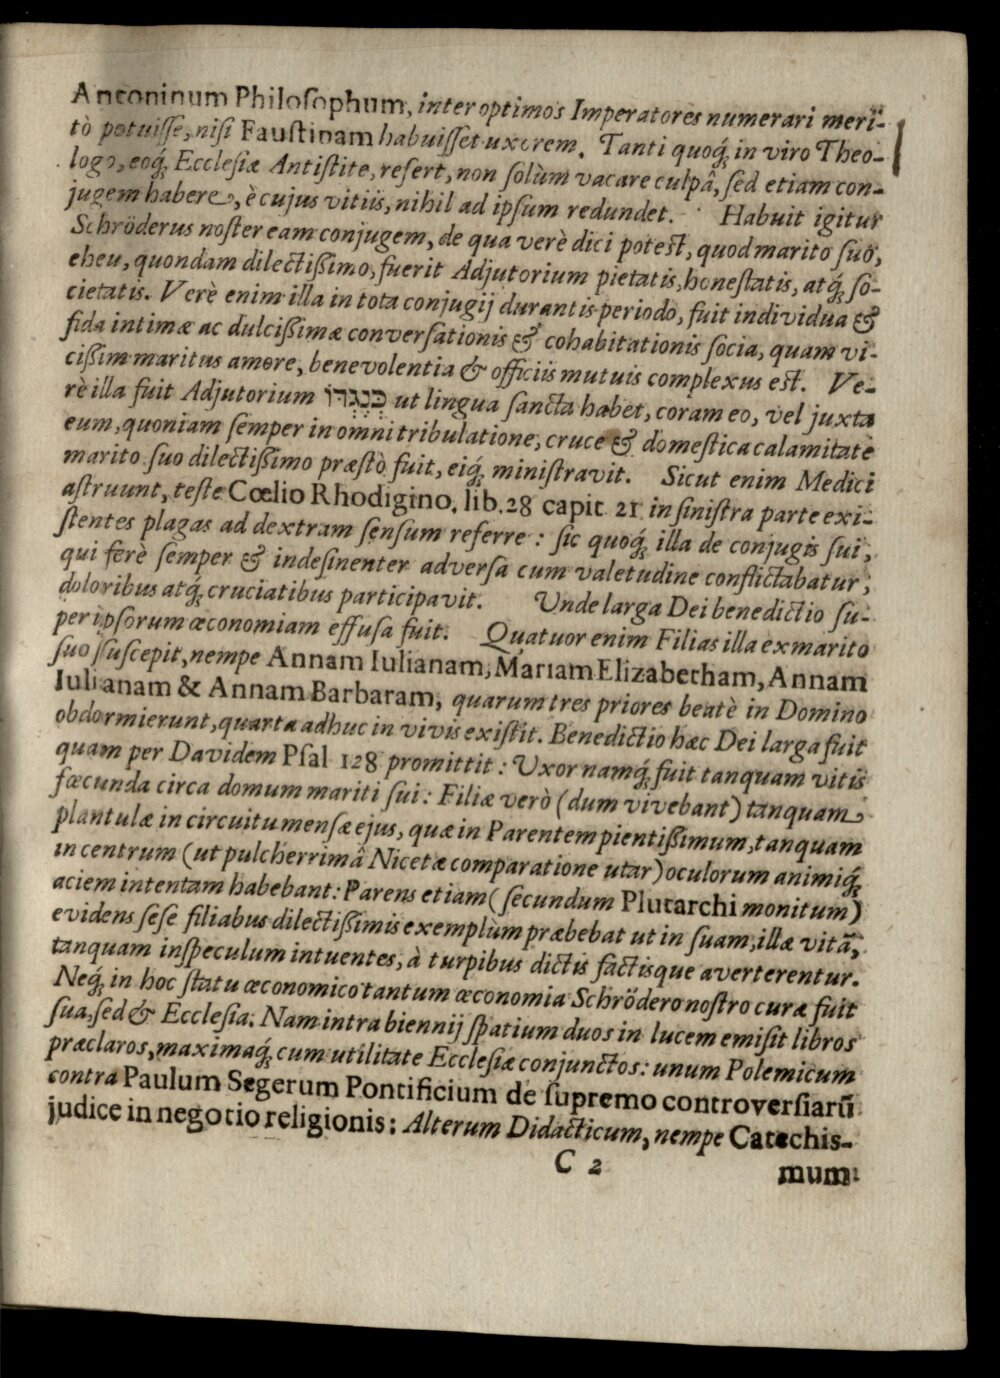 Antoninum Philosophum, inter optimos Imperatores numerari meri-
tò potuisse, nisi Faustinam habuisset uxorem. Tanti quoq́; in viro Theo-
logo, eoq́; Ecclesiæ Antistite, refert, non solùm vacare culpâ, sed etiam con-
jugem habere, è cujus vitiis, nihil ad ipsum redundet. Habuit igitur
Schröderus noster eam conjugem, de qua verè dici potest, quod marito suo,
eheu, quondam dilectißimo, fuerit Adjutorium pietatis, honestatis, atq́; so-
cietatis. Verè enim illa in tota conjugij durantis periodo, fuit individua &
fida intimæ ac dulcißimæ conversationis & cohabitationis socia, quam vi-
cißim maritus amore, benevolentia & officiis mutuis complexus est. Ve-
rè illa fuit Adjutorium כְּנֶגְדּוֹ ut lingua sancta habet, coram eo, vel juxta
eum, quoniam semper in omni tribulatione, cruce & domestica calamitate
marito suo dilectißimo præstò fuit, eiq́; ministravit. Sicut enim Medici
astruunt, teste Cœlio Rhodigino, lib. 28 capit 21 in sinistra parte exi-
stentes plagas ad dextram sensum referre: sic quoq́; illa de conjugis sui,
qui ferè semper & indesinenter adversa cum valetudine conflictabatur,
doloribus atq́; cruciatibus participavit. Unde larga Dei benedictio su-
per ipsorum œconomiam effusa fuit. Quatuor enim Filias illa ex marito
suo suscepit, nempe Annam Iulianam, Mariam Elizabetham, Annam
Iulianam & Annam Barbaram, quarum tres priores beatè in Domino
obdormierunt, quarta adhuc in vivis existit. Benedictio hæc Dei larga fuit
quam per Davidem Psal 128 promittit: Uxor namq́; fuit tanquam vitis
fœcunda circa domum mariti sui: Filiæ verò (dum vivebant) tanquam
plantulæ in circuitu mensæ ejus, quæ in Parentem pientißimum, tanquam
in centrum (ut pulcherrimâ Nicetæ comparatione utar) oculorum animiq́;
aciem intentam habebant: Parens etiam (secundum Plutarchi monitum)
evidens sese filiabus dilectißimis exemplum præbebat ut in suam, illæ vitã,
tanquam in speculum intuentes, à turpibus dictis factisque averterentur.
Neq́; in hoc statu œconomico tantum œconomia Schrödero nostro curæ fuit
sua, sed & Ecclesia. Nam intra biennij spatium duos in lucem emisit libros
præclaros, maximaq́; cum utilitate Ecclesiæ conjunctos: unum Polemicum
contra Paulum Segerum Pontificium de supremo controversiarũ
judice in negotio religionis: Alterum Didacticum, nempe Catechis-
C 2
mum